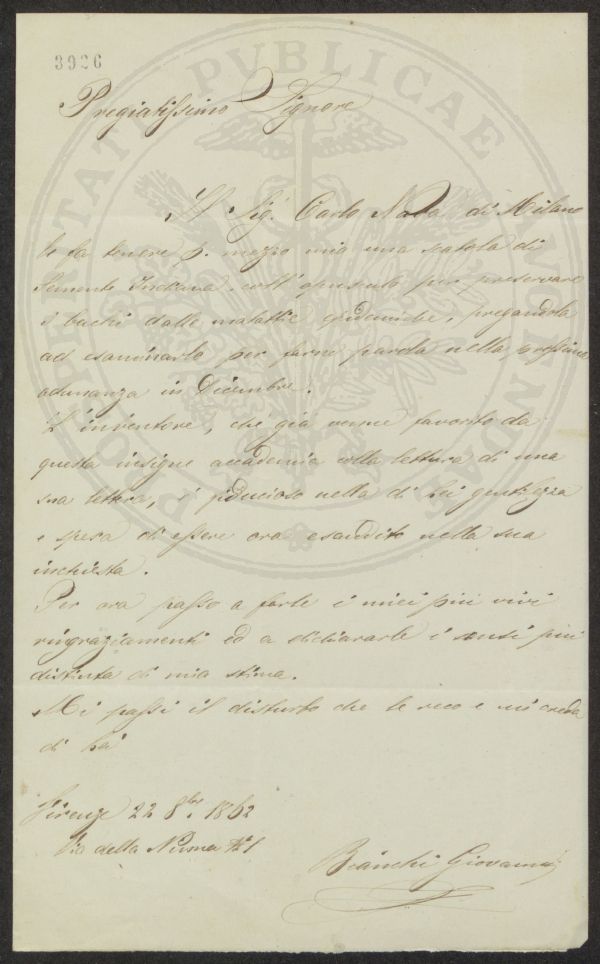 3926
Pregiatissimo Signore
Il Sig. Carlo Nota di Milano
le fa tenere p. mezzo mio una scatola di
Semente Indiana coll' opuscolo per preservare
i bachi dalle malattie epidemiche, pregandola
ad esaminarlo per farne parola nella prossima
adunanza in Dicembre.
L'inventore, che già venne favorito da
questa insigne accademia colla lettura di una
sua lettera, è fiducioso nella di Lei gentilezza
e spera di essere ora esaudito nella sua
inchiesta.
Per ora passo a farle i miei più vivi
ringraziamenti ed a dichiararle i sensi più
distinti di mia stima.
Mi passi il disturbo che le reco e mi creda
di Lei
Firenze 22 8bre. 1862
Via della N°1
Bianchi Giovanni
PROSPERITATI PUBLICAE AUGENDAE